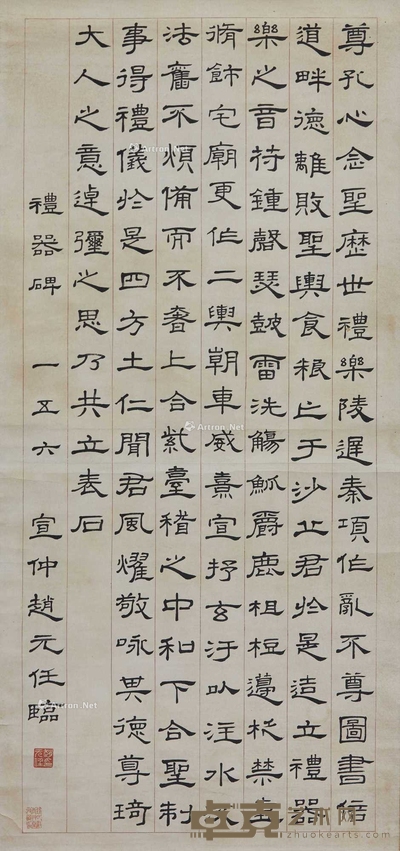 尊孔心念聖歷世禮樂陵遲秦項作亂不尊圖書倍
道畔德離敗聖輿食粮亡于沙丘君於是造立禮器
樂之音苻鍾磬瑟鼓雷洗觴觚爵鹿柤梪籩柉禁壺
脩飾宅廟更作二輿朝車威熹宣抒玄汙以注水流
法舊不煩備而不奢上合紫臺稽之中和下合聖制
事得禮儀於是四方土仁聞君風燿敬咏其德尊琦
大人之意逴彌之思乃共立表石
禮器碑 一五六 宣仲趙元任臨
Artron.Net
艺术网
zhuokearts.com